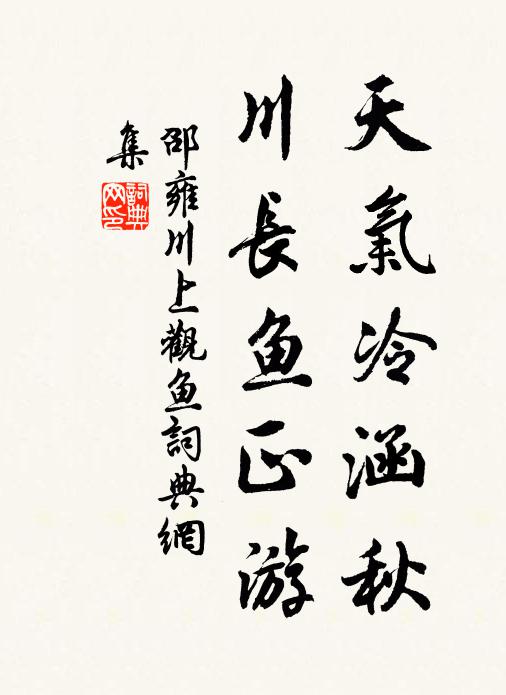 天氣冷涵秋
川長魚正游
邵雍川上觀魚詞典網
集
詞典
网印